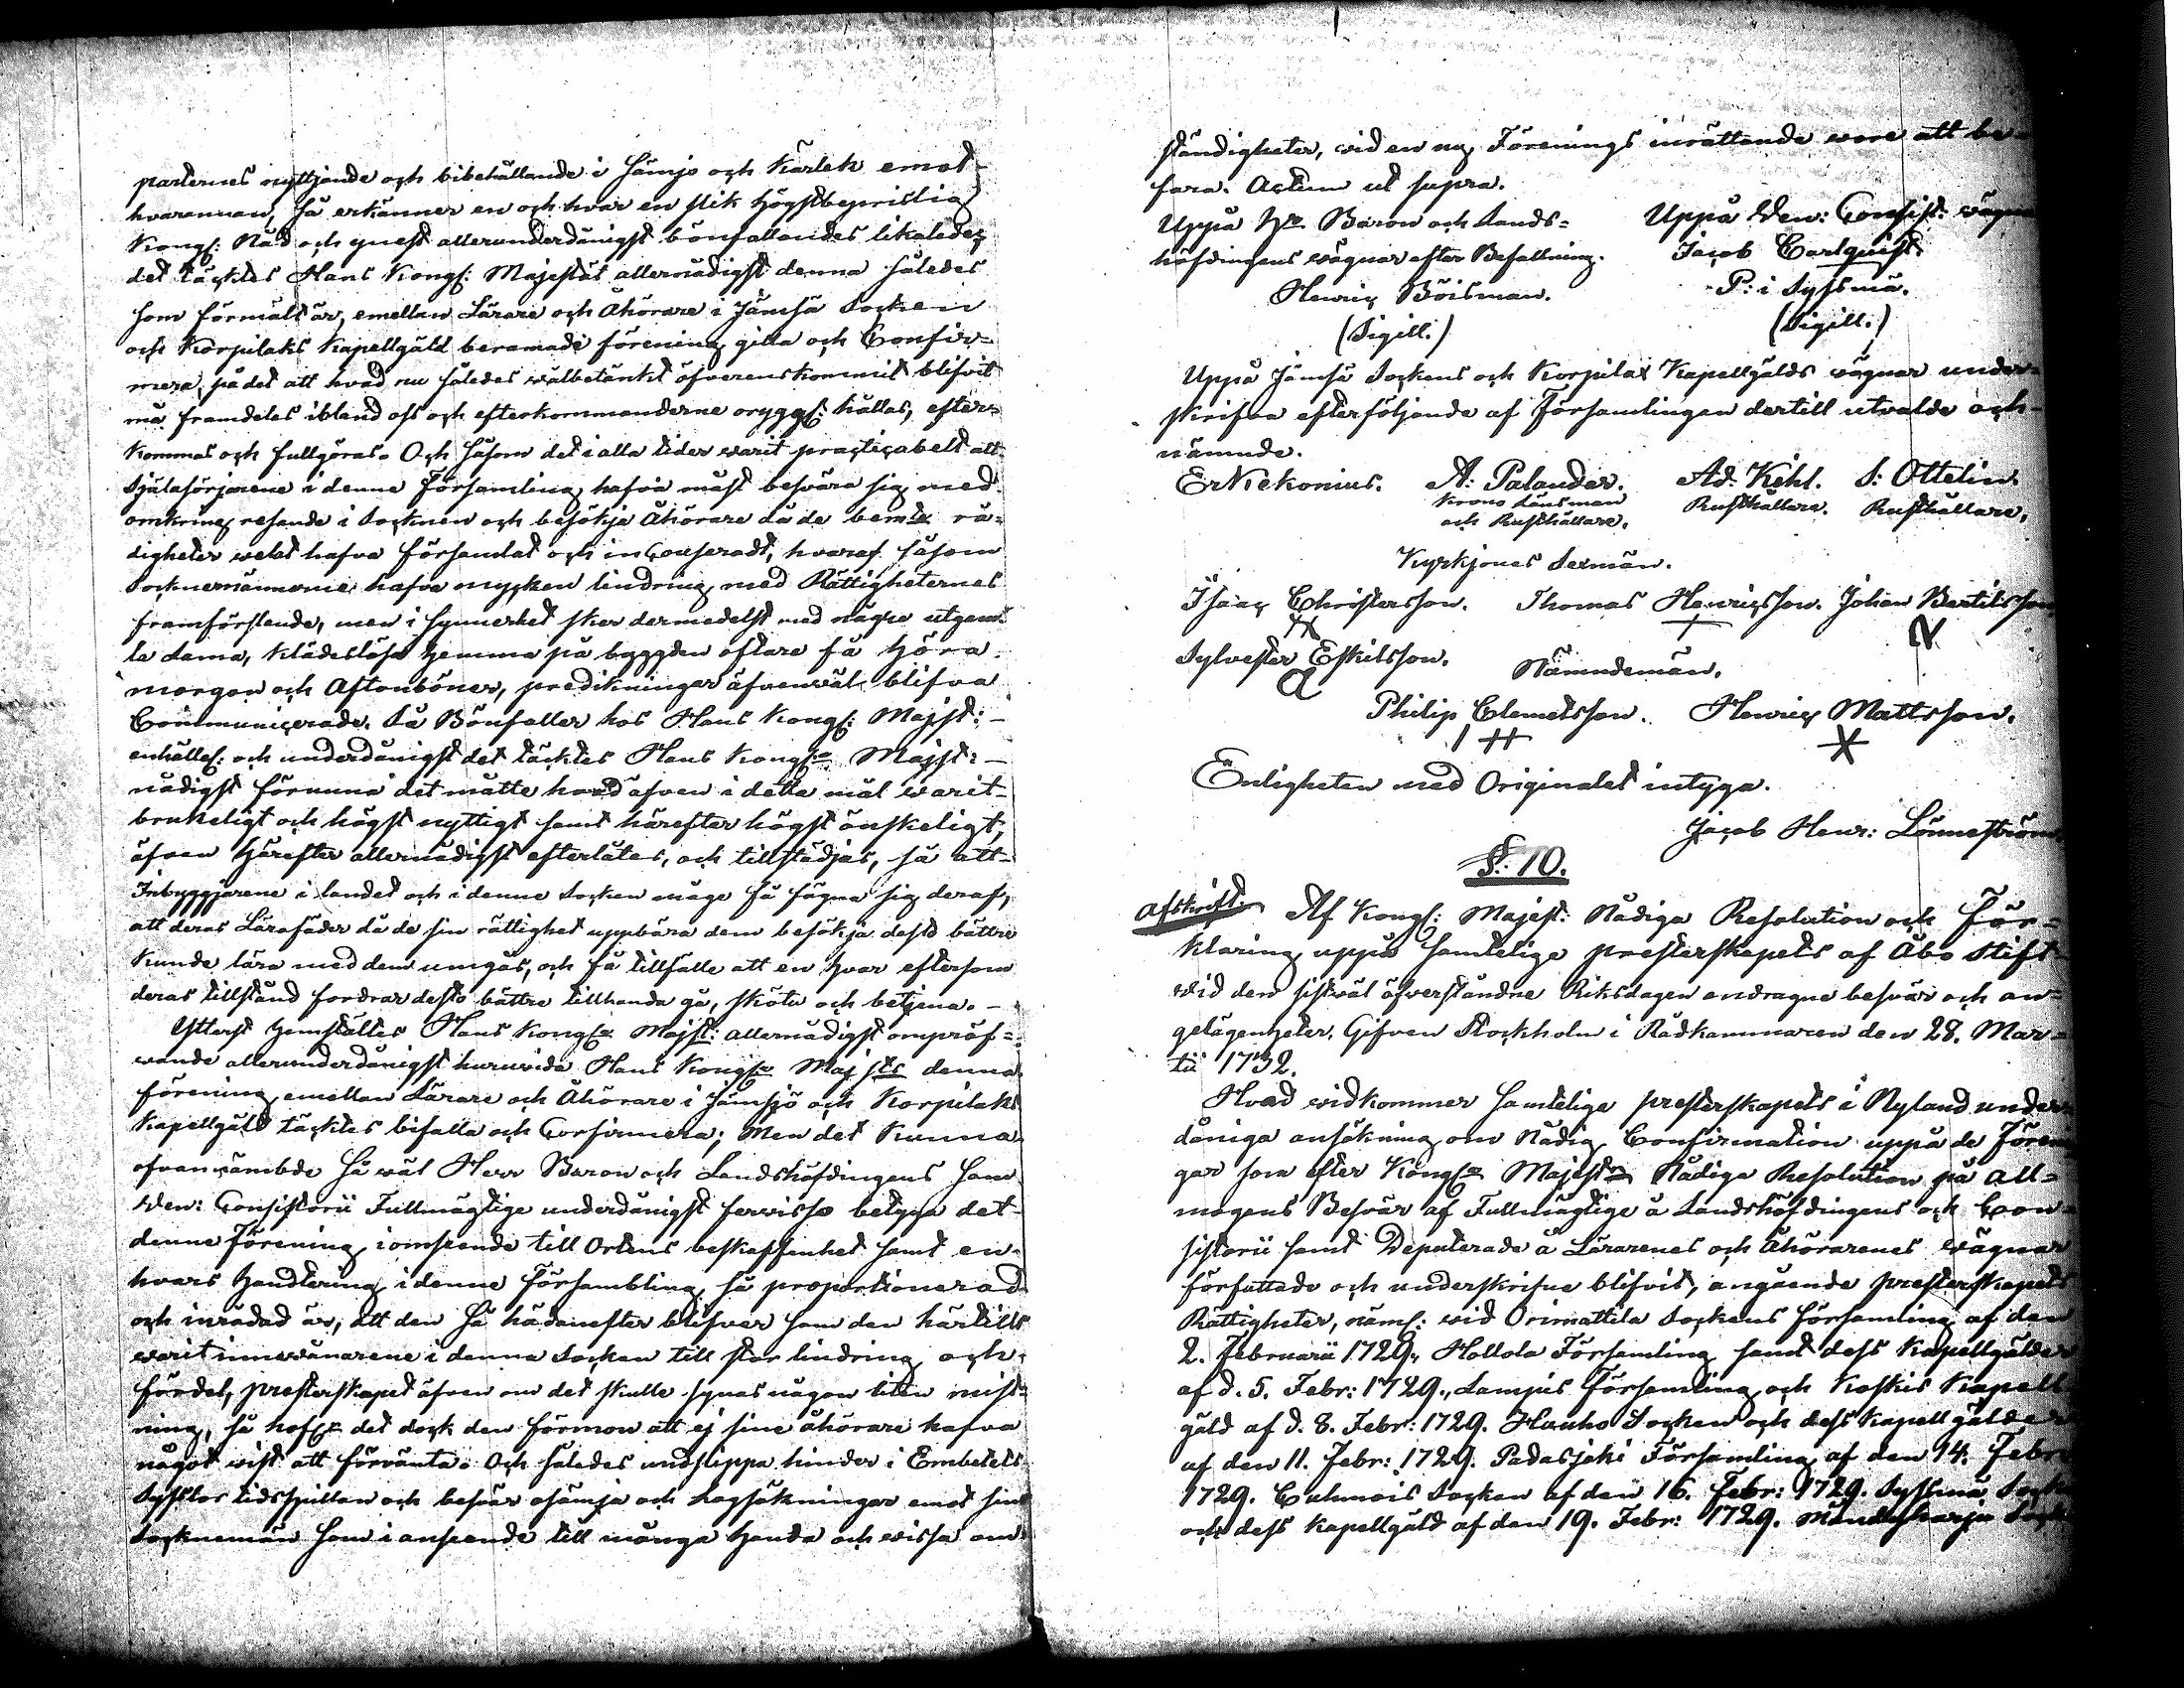 parternes nyttjande och bibehållande i sämjo och Kärlek emot
hvarannan, så erkänner en och hvar en slik högstbeprislig
Kongl: Nåd och ynest allerunderdånigst bönfallandes likaledes
det täcktes Hans Kongl: Majestät allernådigst denna således
som förmält är, emellan Lärare och Åhörare i Jämsä Socken
och Korpilaks Kapellgäld beramade förening gilla och Confir=
mera, på det att hvad nu således wälbetänkt öfverenskommit blifvit
må framdeles ibland oss och efterkommanderne oryggl: hållas, efter=
kommas och fullgöras. Och såsom det i alla tider warit practicabelt att
Själasörjarene i denne Församling hafva måst besvära sig med
omkring resande i Socknen och besökja Åhörare då de bemte rä=
digheter welat hafva församlat och inconseradt, hvaraf såsom
Socknemännerne hafva mycken lindring med Rättigheternes
framförslende, men i synnerhet sker dermedelst med någre utgam=
la lama, klädeslösa hemma på byggden oftare få höra
morgon och Aftonböner, predikningar äfvenwäl blifva
Communicerade. Så Bönfaller hos Hans Kongl: Majst: –
enhällel: och underdånigst det täcktes Hans Kongl:a Majst: –
nådigst förunna det måtte hvad äfven i detta mål warit
brukeligt och högst nyttigt samt härefter högst önskeligt,
äfven härefter allernådigst efterlåtes, och tillstädjas, så att
Inbyggjarene i landet och i denne Socken måge få fägna sig deraf,
att deras Lärofäder då de sin rättighet uppbära dem besökja desto bättre
kunde lära med dem umgås, och få tillfälle att en hvar eftersom
deras tillstånd fordrar desto bättre tillhanda gå, sköta och betjena. –
Ytterst hemställes Hans Kongl:a Majst: allernådigst ompröf=
wande allerunderdånigst huruvida Hans Kongl:a Majsts denna
förening emellan Lärare och Åhörare i Jämsjö och Korpilaks
Kapellgäld täcktes bifalla och Confirmera; Men det kunna
ofvannämbde så wäl Herr Baron och Landshöfdingens som
Wen: Consistorii Fullmägtige underdånigst serwisso betyga det
denne förening i omseende till Ortens beskaffenhet samt en
hvars handtering i denne försambling så proportionerad
och inrädad är, att den så hädanefter blifver som den härtills
warit innewånarene i denna Socken till stor lindring och
fördel, presterskapet äfven om det skulle synas någon liten mist=
ning, så hafr det dock den förmon att ej sine åhörare hafva
något wist att förvänta. Och således undslippa hinder i Embetets
Sysslor tidsspillan och besvär osämja och lagsökningar emot sine
Socknemän som i anseende till många handa och wissa om=
ständigheter, wid en ny Förenings inrättande wore att be=
fara. Actum ut supra.
Uppå Hr Baron och Lands=
höfdingens wägnar efter Befallning.
Henric Böisman.
(Sigill.)
Uppå Wen: Consist: wägnar
Jacob Carlquist
P: i Syssmä.
(Sigill.)
Uppå Jämsä Sockens och Korpilax Kapellgälds wägnar under=
skrifva efterföljande af församlingen dertill utvalde och
nämnde.
Er Kekonius. A: Palander. Ad: Kihl. S: Ottelin
Krono Länsman Rusthållare. Rusthållare.
och Rusthållare.
Kyrkjones Sexmän.
Isaac Christersson. Thomas Henricsson. Johan Bertilsson
Sylvester Eskilsson. Nämndemän.
Philip Clemetsson. Henric Mattsson.
Enligheten med Originalet intyga.
Jacob Henr: Lönneström
§. 10.
Afskrift.
Af Kongl: Majest: Nådiga Resolution och För=
klaring uppå samtelige presterskapets af Åbo Stift
wid den sistwäl öfverståndne Riksdagen andragne besvär och an=
gelägenheter. Gifven Stockholm i Rådkammaren den 28. Mar=
tii 1732.
Hvad widkommer samtelige presterskapets i Nyland under
dåniga ansökning om Nådig Confirmation uppå de Förenin
gar som efter Kongl:a Majest:ts Nådiga Resolution på All=
mogens Besvär af Fullmägtige å Landshöfdingens och Con=
sistorii samt Deputerade å Lärarenes och Åhörarenes wägnar
författade och underskrifne blifvit, angående presterskapets
Rättigheter, näml: wid Orimattila Sockens församling af den
2. Februarii 1729., Hollola Församling samt dess Kapellgälder
af d. 5. Febr: 1729., Lampis församling och Koskis Kapell
gäld af d. 8. Febr: 1729. Hauho Socken och dess kapellgälder
af den 11. Febr: 1729. Padasjoki Församling af den 14. Febr
1729. Cuhmois Socken af den 16. Febr: 1729. Syssmä Socken
och dess kapellgäld af den 19. Febr: 1729. Mändyharju Sock